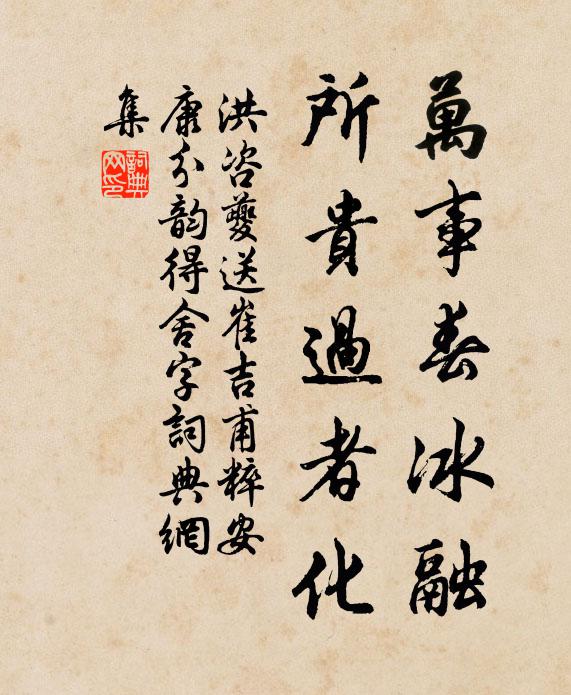 萬事春冰融
所貴過者化
洪咨夔送崔吉甫粹安
康分韵得舍字詞典網
集
詞典
网印